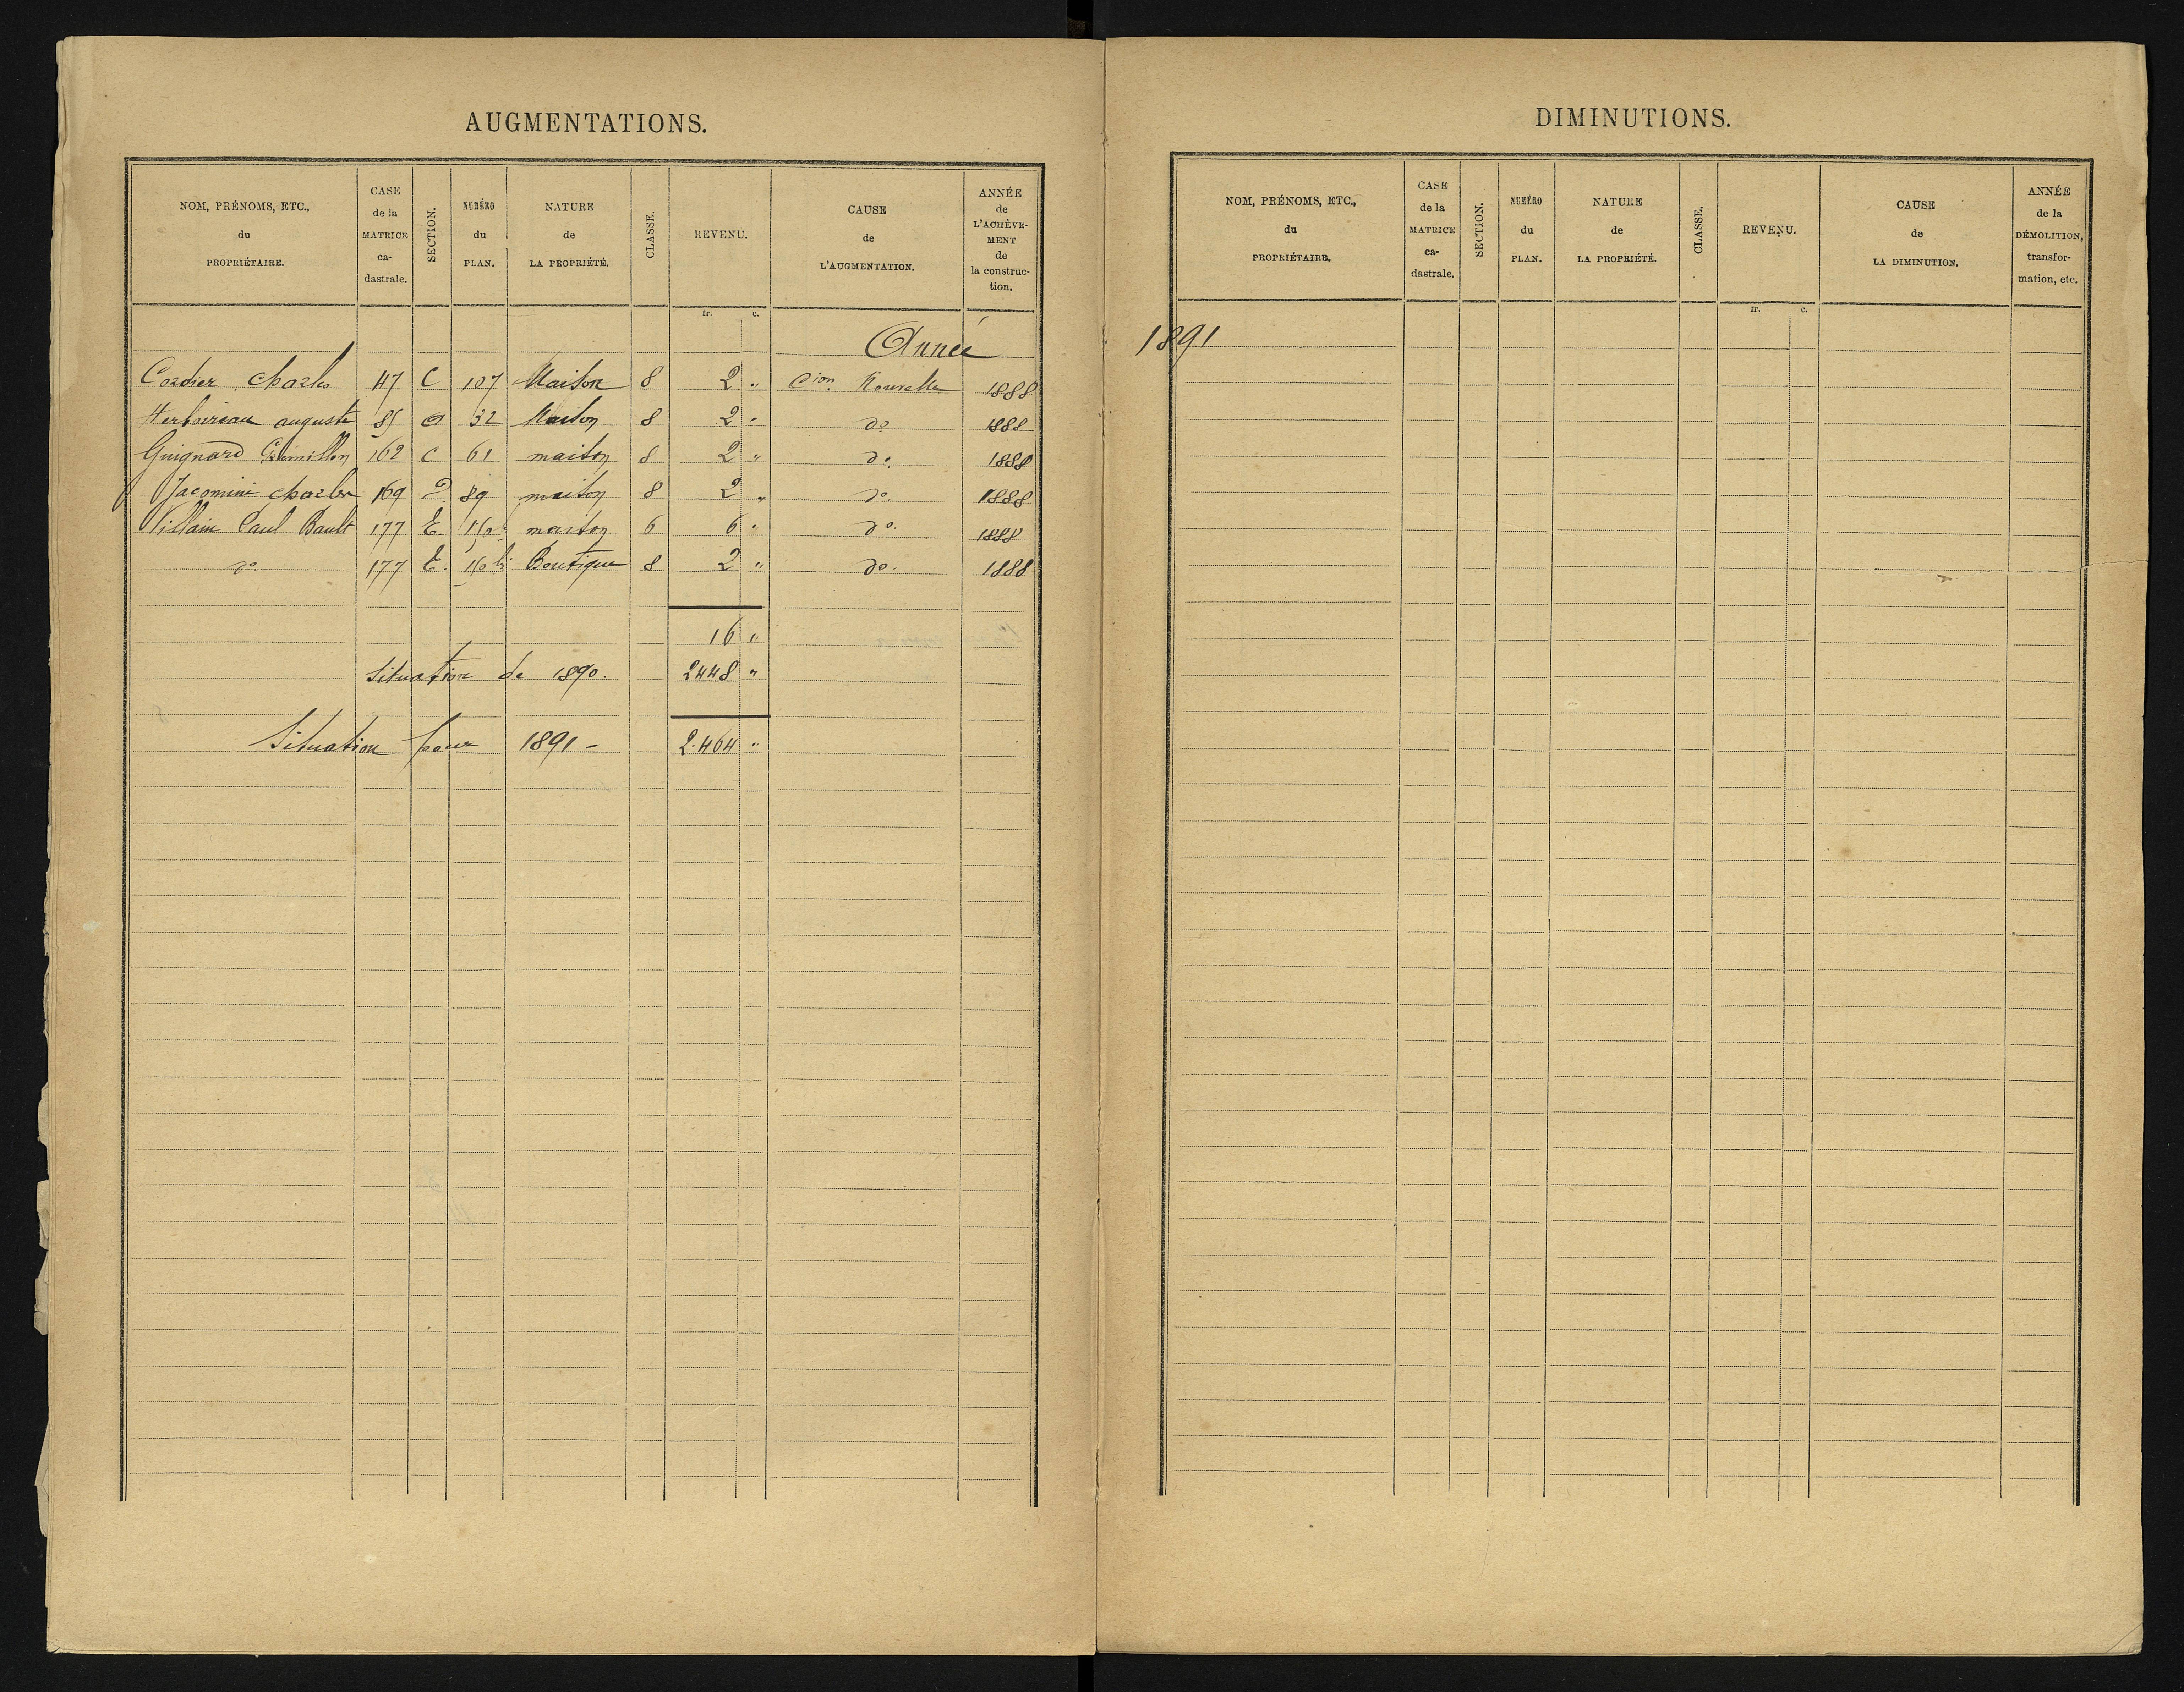 AUGMENTATIONS.
NOM, PRÉNOMS, ETC., du PROPRIÉTAIRE. CASE de la MATRICE ca- dastrale. SECTION. NUMÉRO du PLAN. NATURE de LA PROPRIÉTÉ. CLASSE. REVENU. CAUSE de L'AUGMENTATION. ANNÉE de L'ACHÈVE- MENT de la construc- tion.
fr. c.
Année
Cordier Charles 47 C 107 Maison 8 2 " Cion Nouvelle 1888
auguste 85 32 Maison 8 2 " do 1888
Guignard 162 C 61 maison 8 2 " do. 1888
Jacomini charles 169 D 89 maison 8 2 " do. 1888
Villain Paul Bault 177 E. maison 6 6 " do. 1888
do 177 E. Boutique 8 2 " do. 1888
16 "
Situation de 1890. 2448 "
Situation pour 1891 - 2.464 "
DIMINUTIONS.
NOM, PRÉNOMS, ETC., du PROPRIÉTAIRE. CASE de la MATRICE ca- dastrale. SECTION. NUMÉRO du PLAN. NATURE de LA PROPRIÉTÉ. CLASSE. REVENU. CAUSE de LA DIMINUTION. ANNÉE de la DÉMOLITION, transfor- mation, etc.
fr. c.
1891